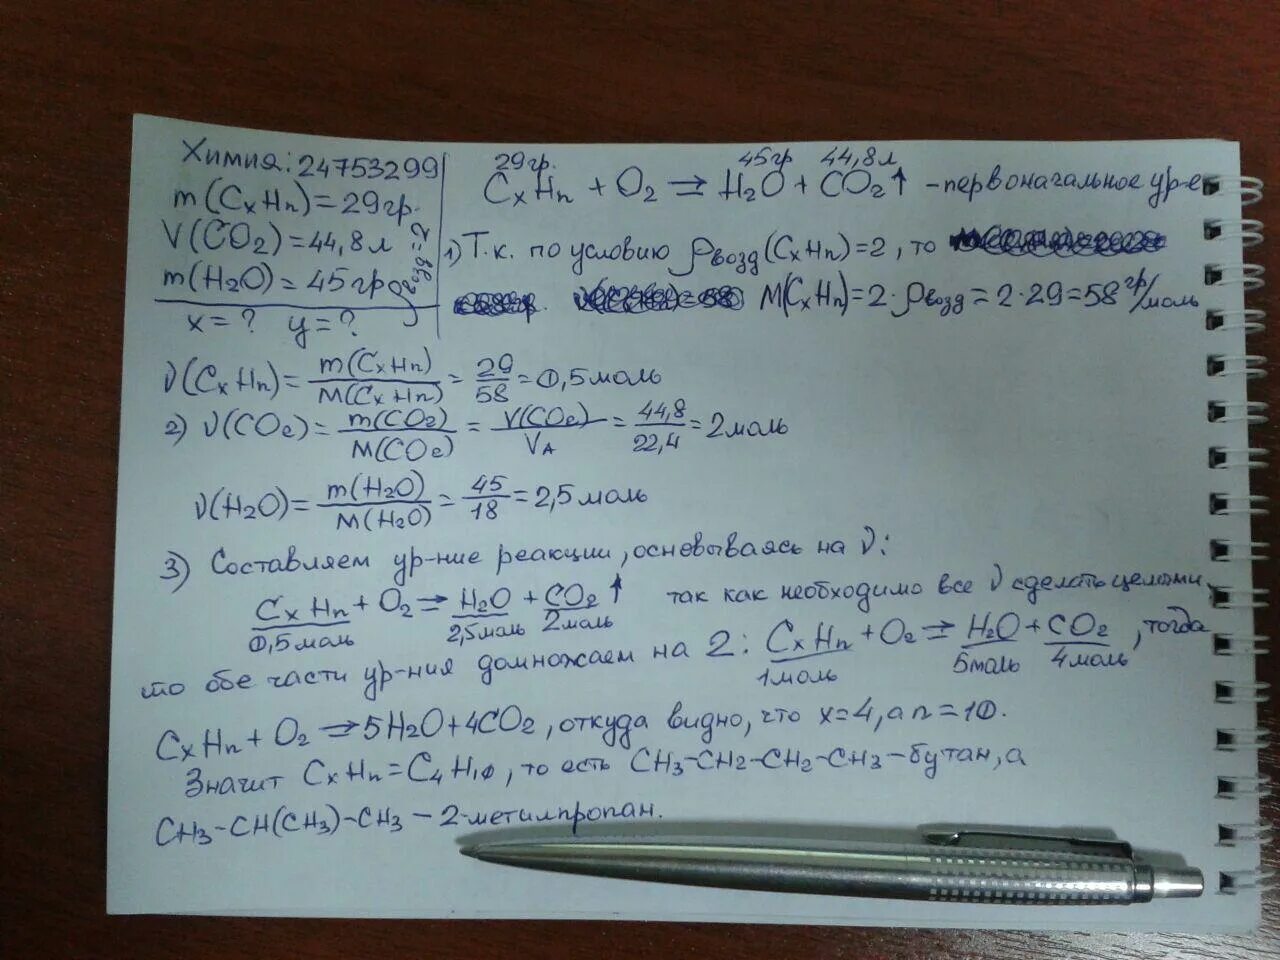 Химия: 24753299
m(CxHn)=29гр.
V(CO2)=44,8л
m(H2O)=45гр ρвозд=2
x=? y=?
29гр. 45гр 44,8л
CxHn + O2 ⇒ H2O + CO2↑ - первоначальное ур-е
1) Т.к. по условию ρвозд(CxHn)=2, то
M(CxHn)=2·ρвозд=2·29=58 гр/моль
ν(CxHn)=m(CxHn)/M(CxHn)=29/58=0,5моль
2) ν(CO2)=m(CO2)/M(CO2)=V(CO2)/VA=44,8/22,4=2моль
ν(H2O)=m(H2O)/M(H2O)=45/18=2,5моль
3) Составляем ур-ние реакции, основываясь на ν:
CxHn + O2 ⇒ H2O + CO2↑ так как необходимо все ν сделать целыми,
0,5моль 2,5моль 2моль
то обе части ур-ния домножаем на 2: CxHn + O2 ⇒ H2O + CO2, тогда
1моль 5моль 4моль
CxHn + O2 ⇒ 5H2O + 4CO2, откуда видно, что x=4, а n=10.
Значит CxHn=C4H10, то есть CH3-CH2-CH2-CH3-бутан, а
CH3-CH(CH3)-CH3 - 2-метилпропан.